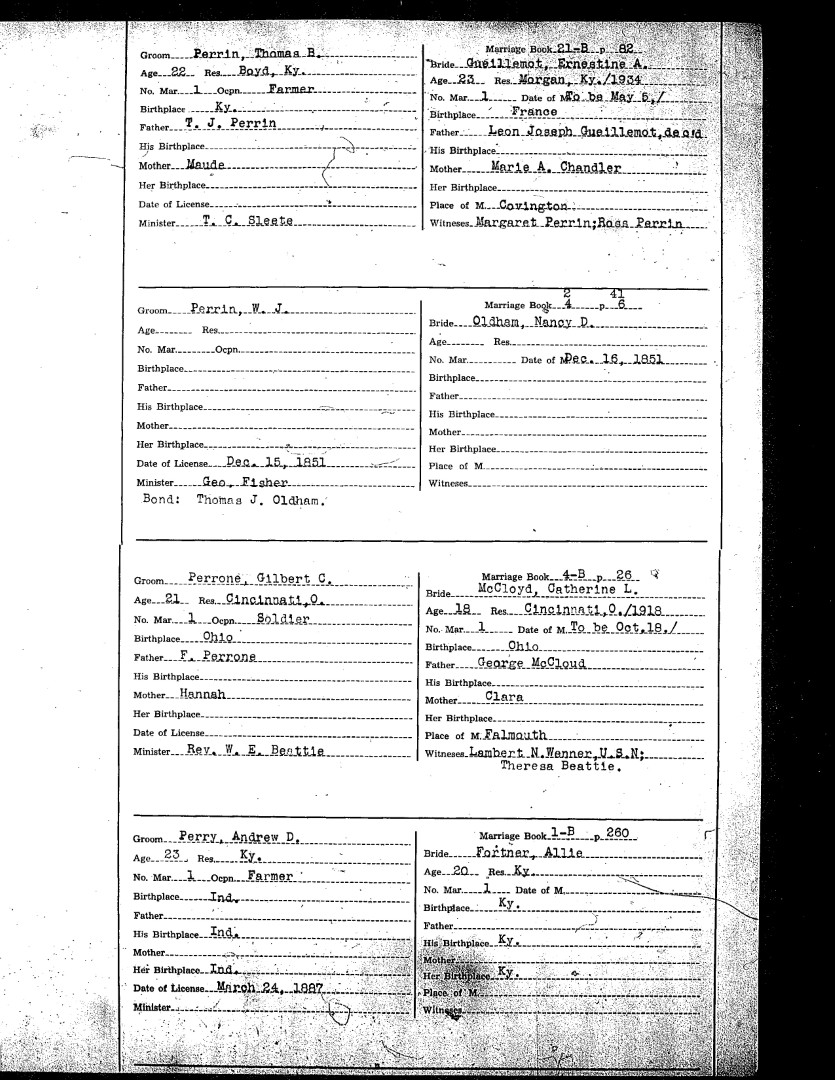 Groom Perrin, Thomas B.
Age 22 Res. Boyd, Ky.
No. Mar. 1 Ocpn. Farmer
Birthplace Ky.
Father T. J. Perrin
His Birthplace
Mother Maude
Her Birthplace
Date of License
Minister T. C. Sleete
Marriage Book 21-B p. 82
Bride Gueillemot, Ernestine A.
Age 23 Res. Morgan, Ky./1934
No. Mar. 1 Date of M. To be May 5,/
Birthplace France
Father Leon Joseph Gueillemot, dec'd
His Birthplace
Mother Marie A. Chandler
Her Birthplace
Place of M. Covington
Witneses Margaret Perrin; Ross Perrin
Groom Perrin, W. J.
Age Res.
No. Mar. Ocpn.
Birthplace
Father
His Birthplace
Mother
Her Birthplace
Date of License Dec. 15, 1851
Minister Geo. Fisher
Bond: Thomas J. Oldham.
2 41
Marriage Book 4 p. 6
Bride Oldham, Nancy D.
Age Res.
No. Mar. Date of M. Dec. 16, 1851
Birthplace
Father
His Birthplace
Mother
Her Birthplace
Place of M.
Witneses
Groom Perrone, Gilbert C.
Age 21 Res. Cincinnati,O.
No. Mar. 1 Ocpn. Soldier
Birthplace Ohio
Father F. Perrone
His Birthplace
Mother Hannah
Her Birthplace
Date of License
Minister Rev. W. E. Beattie
Marriage Book 4-B p. 26
Bride McCloyd, Catherine L.
Age 18 Res. Cincinnati,O./1918
No. Mar. 1 Date of M. To be Oct.18./
Birthplace Ohio
Father George McCloud
His Birthplace
Mother Clara
Her Birthplace
Place of M. Falmouth
Witneses Lambert N.Wenner,U.S.N;
Theresa Beattie.
Groom Perry, Andrew D.
Age 23 Res. Ky.
No. Mar. 1 Ocpn. Farmer
Birthplace Ind.
Father
His Birthplace Ind.
Mother
Her Birthplace Ind.
Date of License March 24, 1887
Minister
Marriage Book 1-B p. 260
Bride Fortner, Allie
Age 20 Res. Ky.
No. Mar. 1 Date of M.
Birthplace Ky.
Father
His Birthplace Ky.
Mother
Her Birthplace Ky.
Place of M.
Witneses